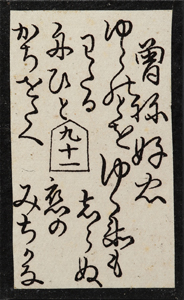 曾祢好忠
ゆらのとを
わたる
舟ひと
かちをたえ
ゆくゑも
しらぬ
恋の
みちかな
九十二